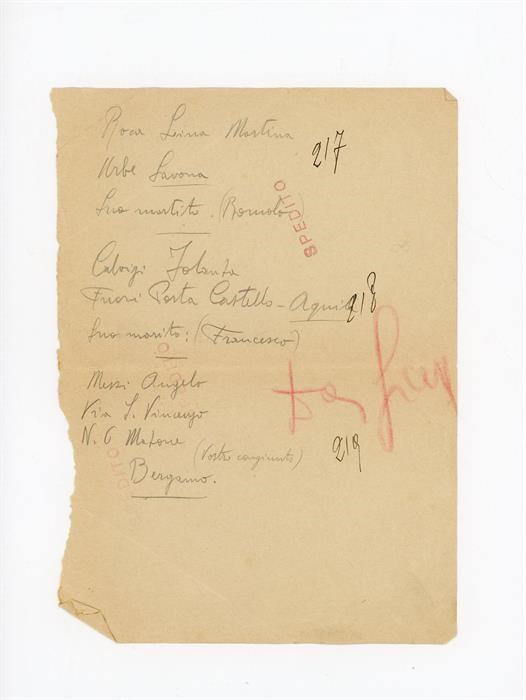 Roca Lina Martina
217
Urbe Savona
Suo martito. (Romolo)
SPEDITO
Calvigi Jolanda
Fuori Porta Castello - Aquila
218
Suo marito: (Francesco)
Messi Angelo
Via S. Vincenzo
N. 6 Matone
(Vostro congiunto)
219
Bergamo.